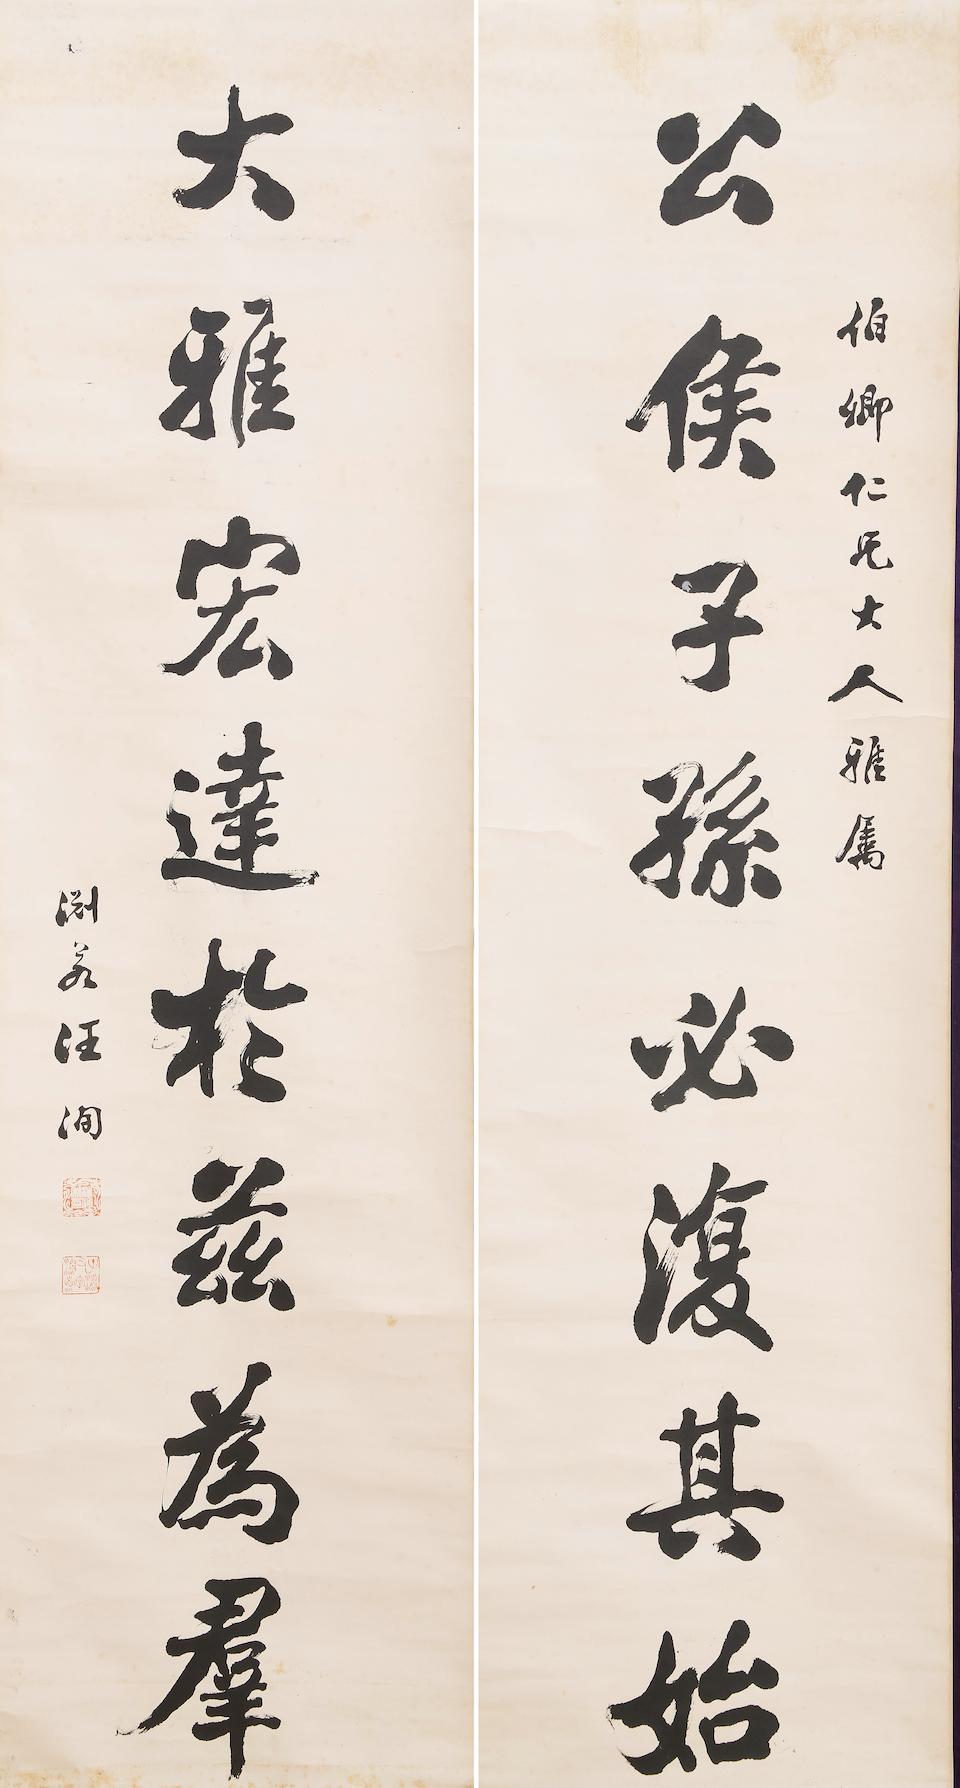 伯卿仁兄大人雅屬
公侯子孫必復其始
大雅宏達於茲為羣
淵若汪洵